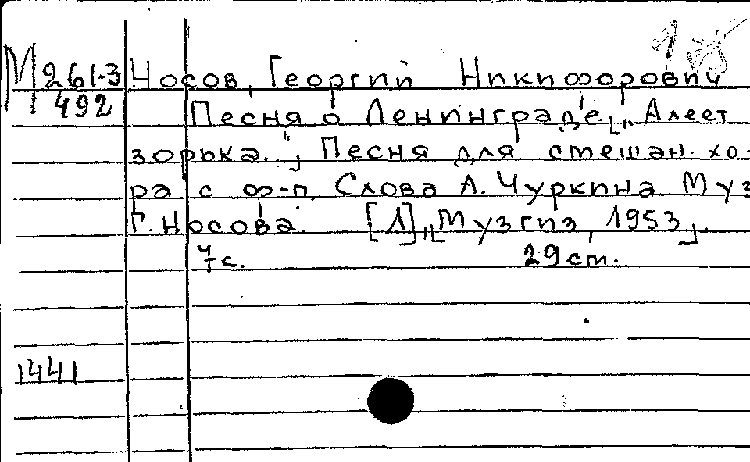 М 261-3 Носов, Георгий Никифорович
492 Песня о Ленинграде. [„Алеет
зорька..."] Песня для смешан. хо-
ра с ф-п. Слова А. Чуркина Муз
Г. Носова. [Л], [Музгиз, 1953].
7 с. 29 cm.
1441